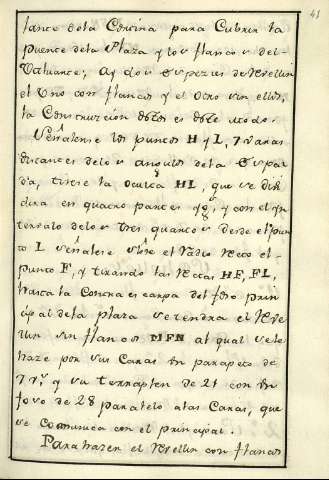 41
lance dela Cortina para Cubrir la
puente dela Plaza y los flancos del
Valuarte, ay dos Especies de Revellin
el Uno con flancos y el Otro sin ellos,
la Construzión destos es deste modo.
Señalense los puntos H y I, 7 varas
distantes delos angulos dela Espal
da, tirese la oculta HI, que se divi
dira en quatro partes ygs. y con el yn
tervalo delos tres quartos desde el pun
to I señalese sobre el Radio recto el
punto F, y tirando las Rectas HF, FI,
hasta la Contra escarpa del foso prin
cipal dela plaza se tendra el Reve
llin sin flancos MFN al qual se le
haze por sus Caras Un parapeto de
7 rs. y su terraplen de 21 con Un
fovo de 28 paralelo alas Caras, que
se Comunica con el principal.
Para hazer el Revellin con flancos